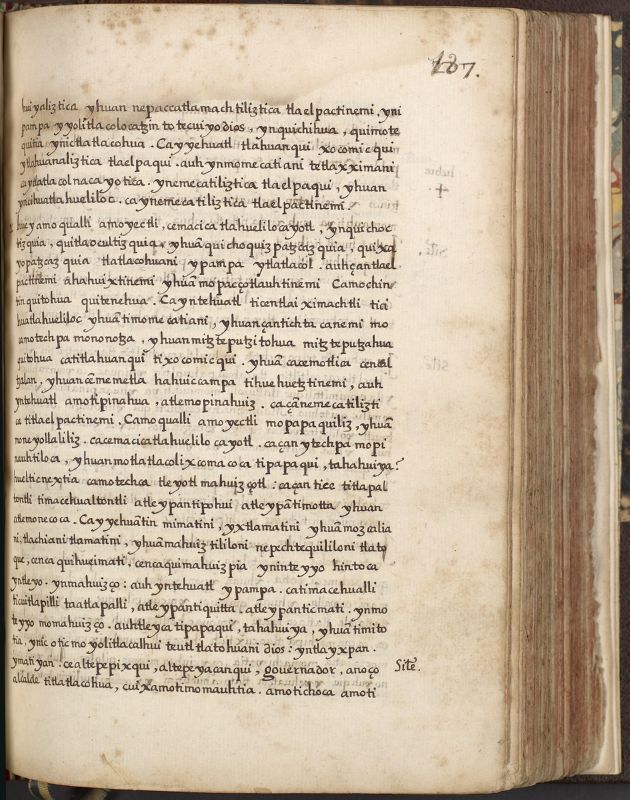 187.
huiyaliztica yhuan nepaccatlamachtiliztica tlaelpactinemi. yni
pampa yyolitlacolocatzin totecuiyo dios, ynquichihua, quimote
quitia ynictlatlacohua. Ca yyehuatl tlahuanqui xocomicqui
ytlahuanaliztica tlaelpaqui. auh ynmomecatiani tetlaxximani
caytlatlacolnacayotica. ynemecatiliztica tlaelpaqui, yhuan
yncihuatlahueliloc. caynemecatiliztica tlaelpactinemi.
huey amoqualli amoyectli, cemacica tlahuelilocayotl, ynquichoc
tizquia, quitlaocultizquia, yhuā quichoquizpatzcazquia, quixa
yopatzcazquia tlatlacohuani ypampa ytlatlacol. auh çan tlael
pactinemi ahahuixtinemi yhuā mopacçotlauhtinemi Camochin
tin quitohua quitenehua. Ca yntehuatl ticentlaiximachtli tici
huatlahueliloc yhuā timomecatiani, yhuan çantichtacanemi mo
amotechpa mononotza, yhuan mitzteputzitohua mitzteputzahua
quitohua catitlahuanqui tixocomicqui. yhuā cacemotlica cental
tzalan, yhuan cēmemetla hahuiccampa tihuehuetztinemi, auh
yntehuatl amotipinahua, atlemopinahuiz. caçāneme catilizti
ca titlaelpactinemi. Camoqualli amoyectli mopapaquiliz, yhuā
moneyollaliliz. cacemacicatlahuelilocayotl. caçan ytechpa mopi
nauhtiloca, yhuanmotlatlacolixcomacoca tipapaqui, tahahuiya?
hueltic nextia camotechca tleyotl mahuizçotl: caçantice titlapal
tontli timacehualtontli atleypantipohui atleypātimotta yhuan
atlemonecoca. Ca yyehuātin mimatini, yxtlamatini yhuāmozcalia
ni, tlachiani tlamatini, yhuāmahuiztililoni nepechtequililoni tlato
que, cenca quihueimati, cencaquimahuizpia ynin teyyo hintoca
yntleyo. ynmahuizço: auh yntehuatl ypampa. catimacehualli
ticuitlapilli taatlapalli, atleypantiquitta. atleypanticmati. ynmo
teyyo momahuizço. auhtleyca tipapaqui, tahahuiya, yhuā timito
tia, ynic oticmoyolitlacalhui teutltlatohuani dios: yntlayxpan.
ymatiyan. cealtepepixqui, altepeyacanqui, gouernador, anoço
alcalde titlatlacohua, cuixamotimomauhtia. amotichoca amoti
Sitē.